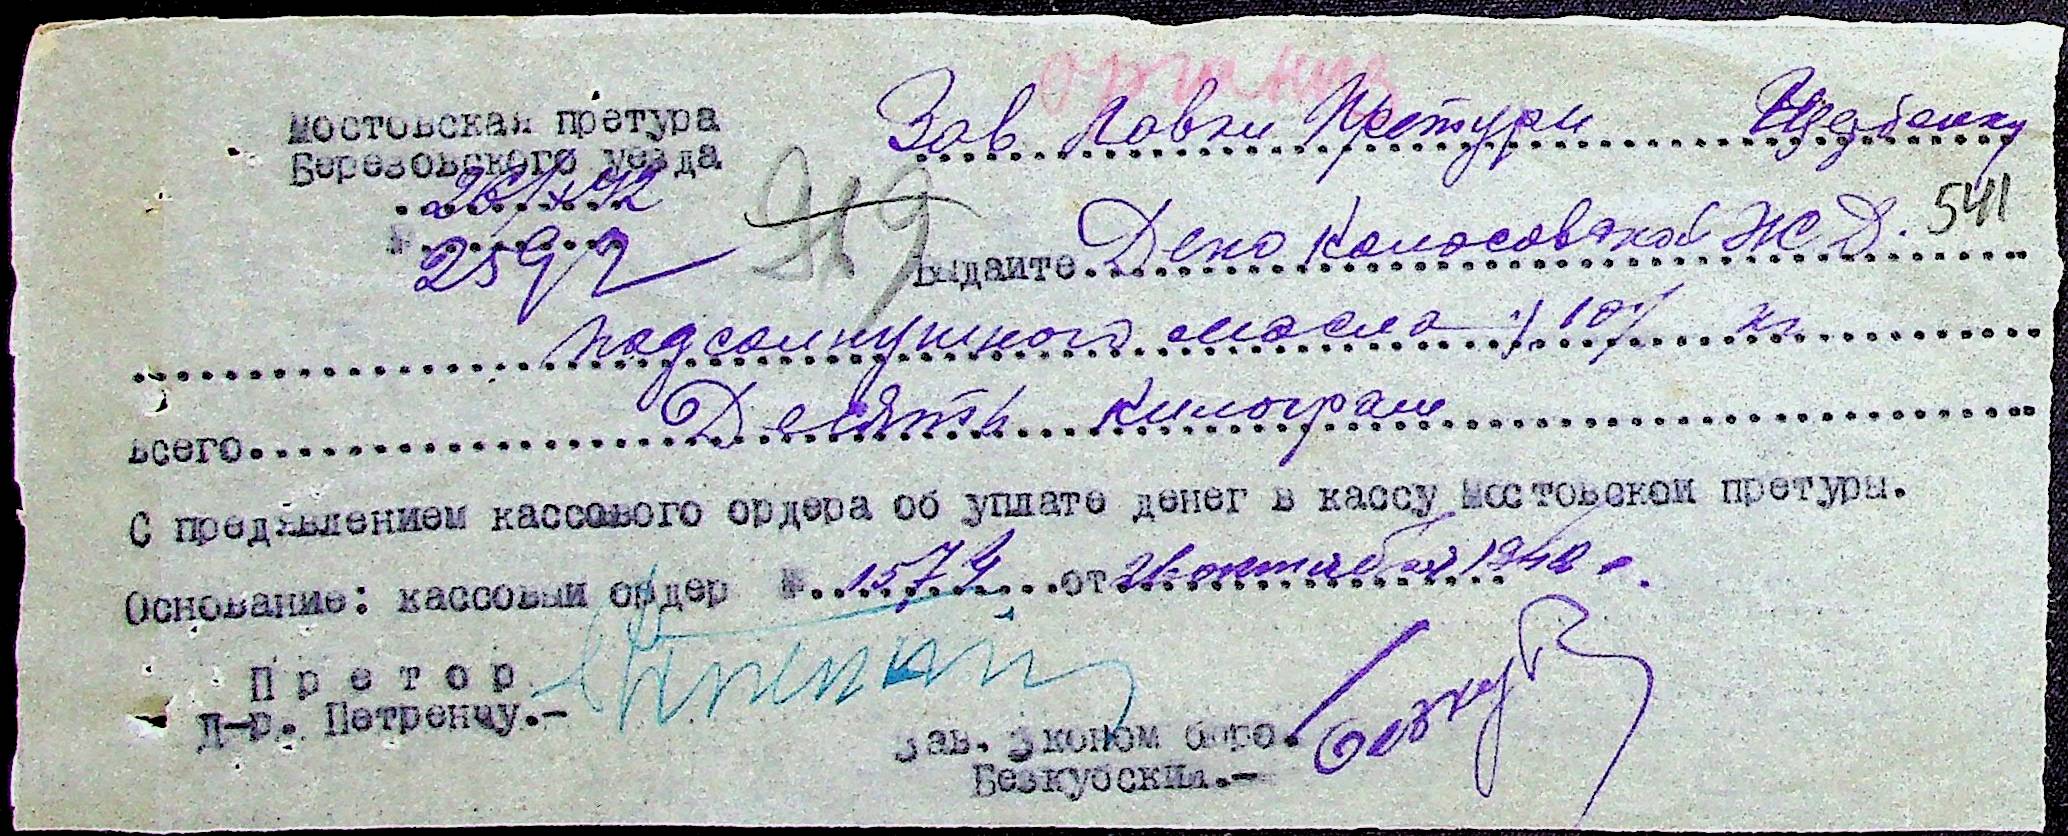 организ
Мостовская претура
Березовского уезда
26/X 42
№ 2592
Зав Лавки Претури Щербенку
919
541
Выдайте Депо Колосовской Ж Д.
подсолнушного масла /10/ кг
Всего Десять килограм
С предявлением кассового ордера об уплате денег в кассу Мостовской претуры.
Основание: кассовый ордер № 1574 от 26 октября 1942 г.
Претор
Д-р. Петренчу.-
Зав. Эконом бюро.
Безкубский.-